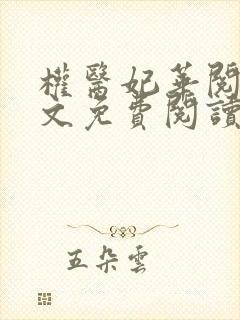 權醫妃華閱
文免費閱讀
五朵雲